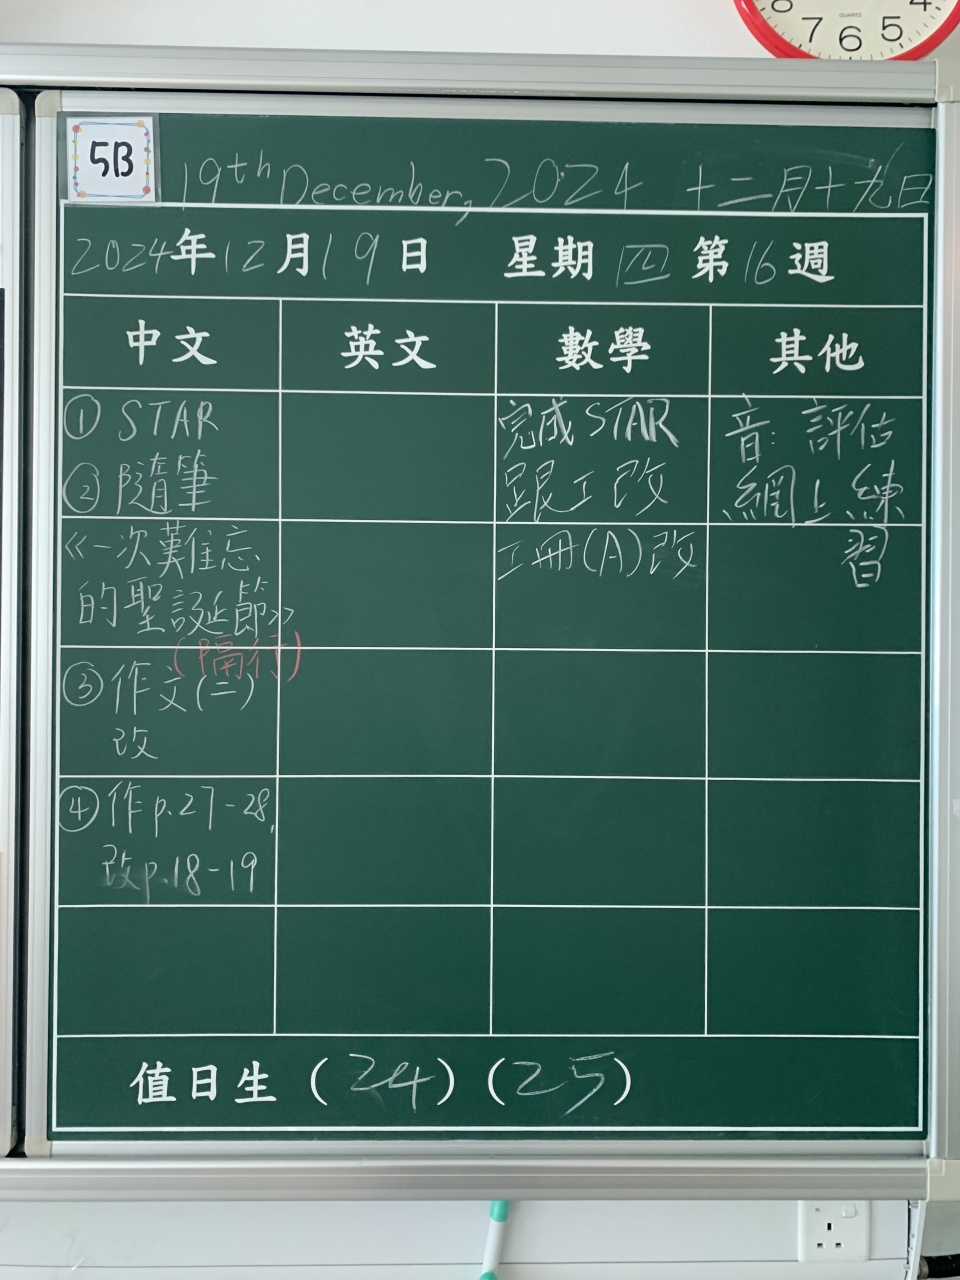 QUARTZ
8 7 6 5 4
5B
19th December, 2024 十二月十九日
2024年12月19日 星期四 第16週
中文 英文 數學 其他
① STAR
② 隨筆
《一次難忘
的聖誕節》
(隔行)
③ 作文(二)
改
④ 作 p.27-28,
改p.18-19
完成STAR
跟工改
工冊(A)改
音: 評估
網上練
習
值日生 (24) (25)